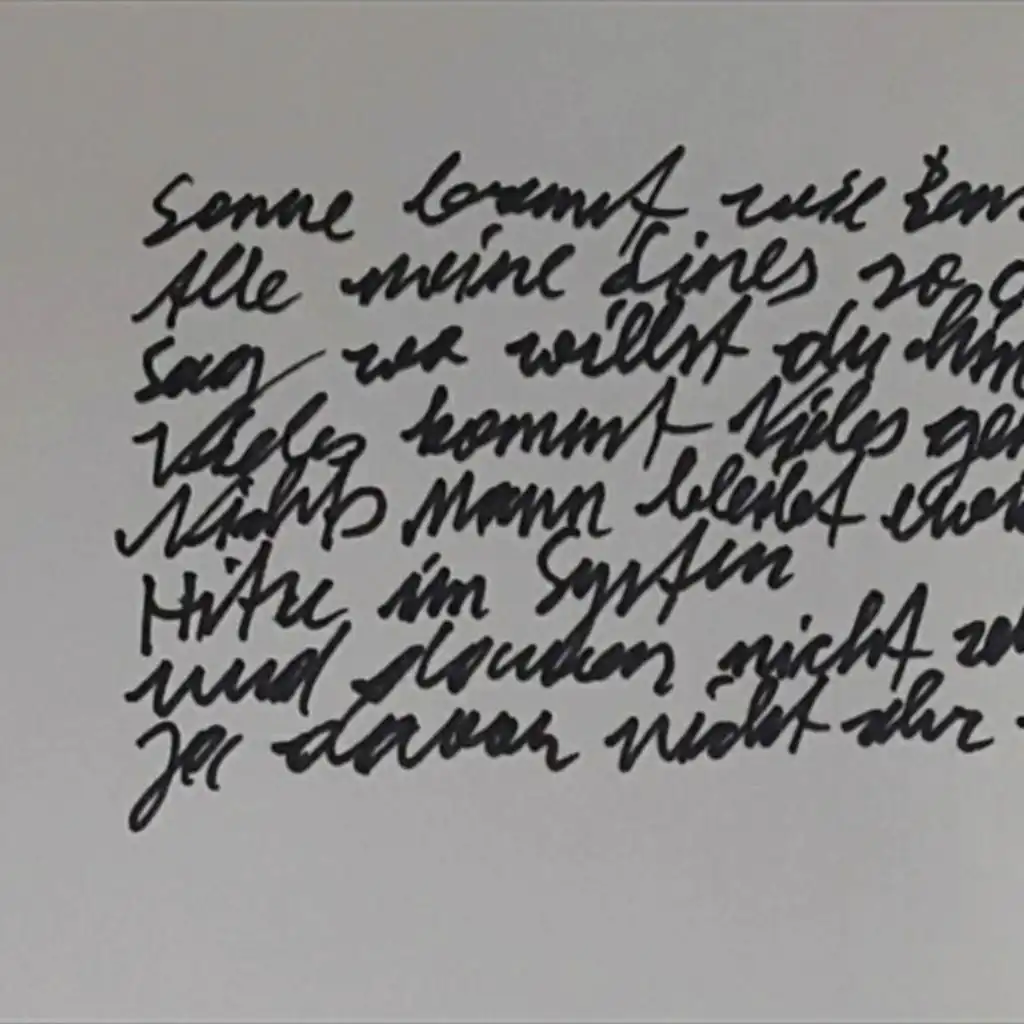 Sonne brennt wie
Alle meine Lines so
Sag wo willst du
Vieles kommt Vieles
Nichts Mann bleibt
Hitze im System
und davon nicht
Ja davon nicht sehr